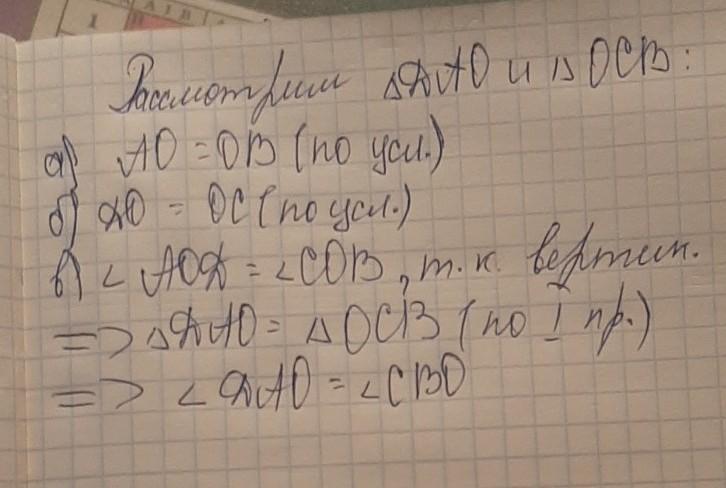 1 A I B
Рассмотрим △DAO и △OCB:
а) AO = OB (по усл.)
б) DO = OC (по усл.)
в) ∠AOD = ∠COB, т.к. вертик.
=> △DAO = △OCB (по I пр.)
=> ∠DAO = ∠CBO